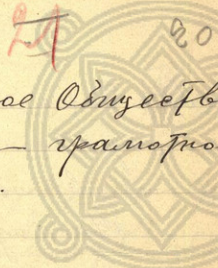 21 20
ое Обществ
— грамотно